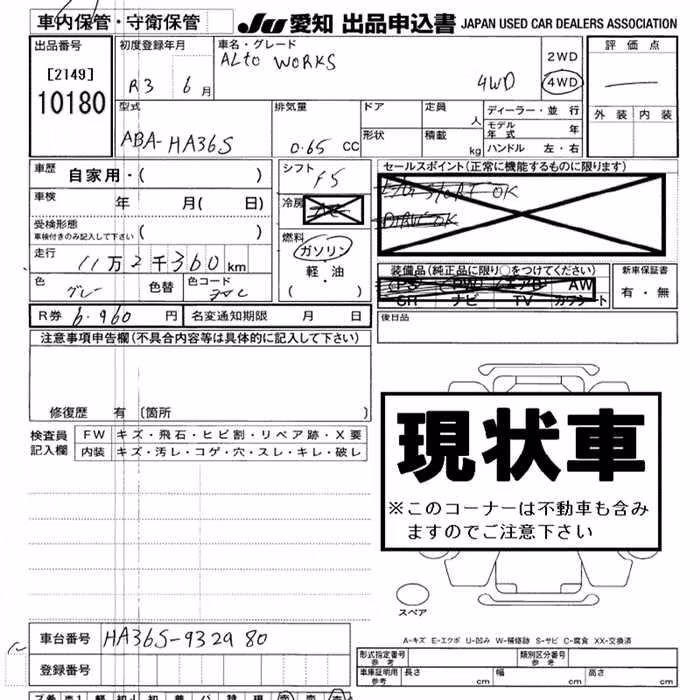 車内保管・守衛保管 JU 愛知 出品申込書 JAPAN USED CAR DEALERS ASSOCIATION
出品番号 初度登録年月 車名・グレード 評価点
[2149] ALto WORKS 2WD
10180 R3 6月 4WD 4WD
型式 排気量 ドア 定員 人 ディーラー・並行 外装 内装
ABA-HA36S 0.65 CC 形状 積載 kg モデル年式 年
ハンドル 左・右
車歴 自家用・( ) シフト F5 セールスポイント(正常に機能するものに限ります)
車検 年 月( 日) 冷房 AC OK
受検形態 ( ) OK
車検付きのみ記入して下さい 燃料
走行 11万2千360km ガソリン 装備品(純正品に限り○をつけてください) 新車保証書
色 グレー 色替 色コード 軽・油 PS PW エアB AW 有・無
( ) SR ナビ TV カワシート
R券 6.960円 名変通知期限 月 日 後日品
注意事項申告欄(不具合内容等は具体的に記入して下さい)
修復歴 有 [箇所 ]
検査員 FW キズ・飛石・ヒビ割・リペア跡・X要
記入欄 内装 キズ・汚レ・コゲ・穴・スレ・キレ・破レ
現状車
※このコーナーは不動車も含み
ますのでご注意下さい
スペア
A-キズ E-エクボ U-凹み W-補修跡 S-サビ C-腐食 XX-交換済
車台番号 HA36S-932980 形式指定番号 参考 類別区分番号 参考
登録番号 車庫証明用 参考 長さ cm 幅 cm 高さ cm